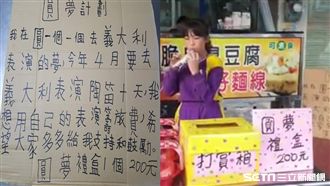 圓夢計劃
我在圓一個一個去義大利
表演的夢,今年4月要去
義大利表演陶笛十天我
想用自己的表演籌旅費希
望大家多多給我支持和鼓勵。
圓夢禮盒1個200元
脆
臭豆腐
麵線
可素食
打賞箱
圓夢
禮盒
200元
SETN三立新聞網